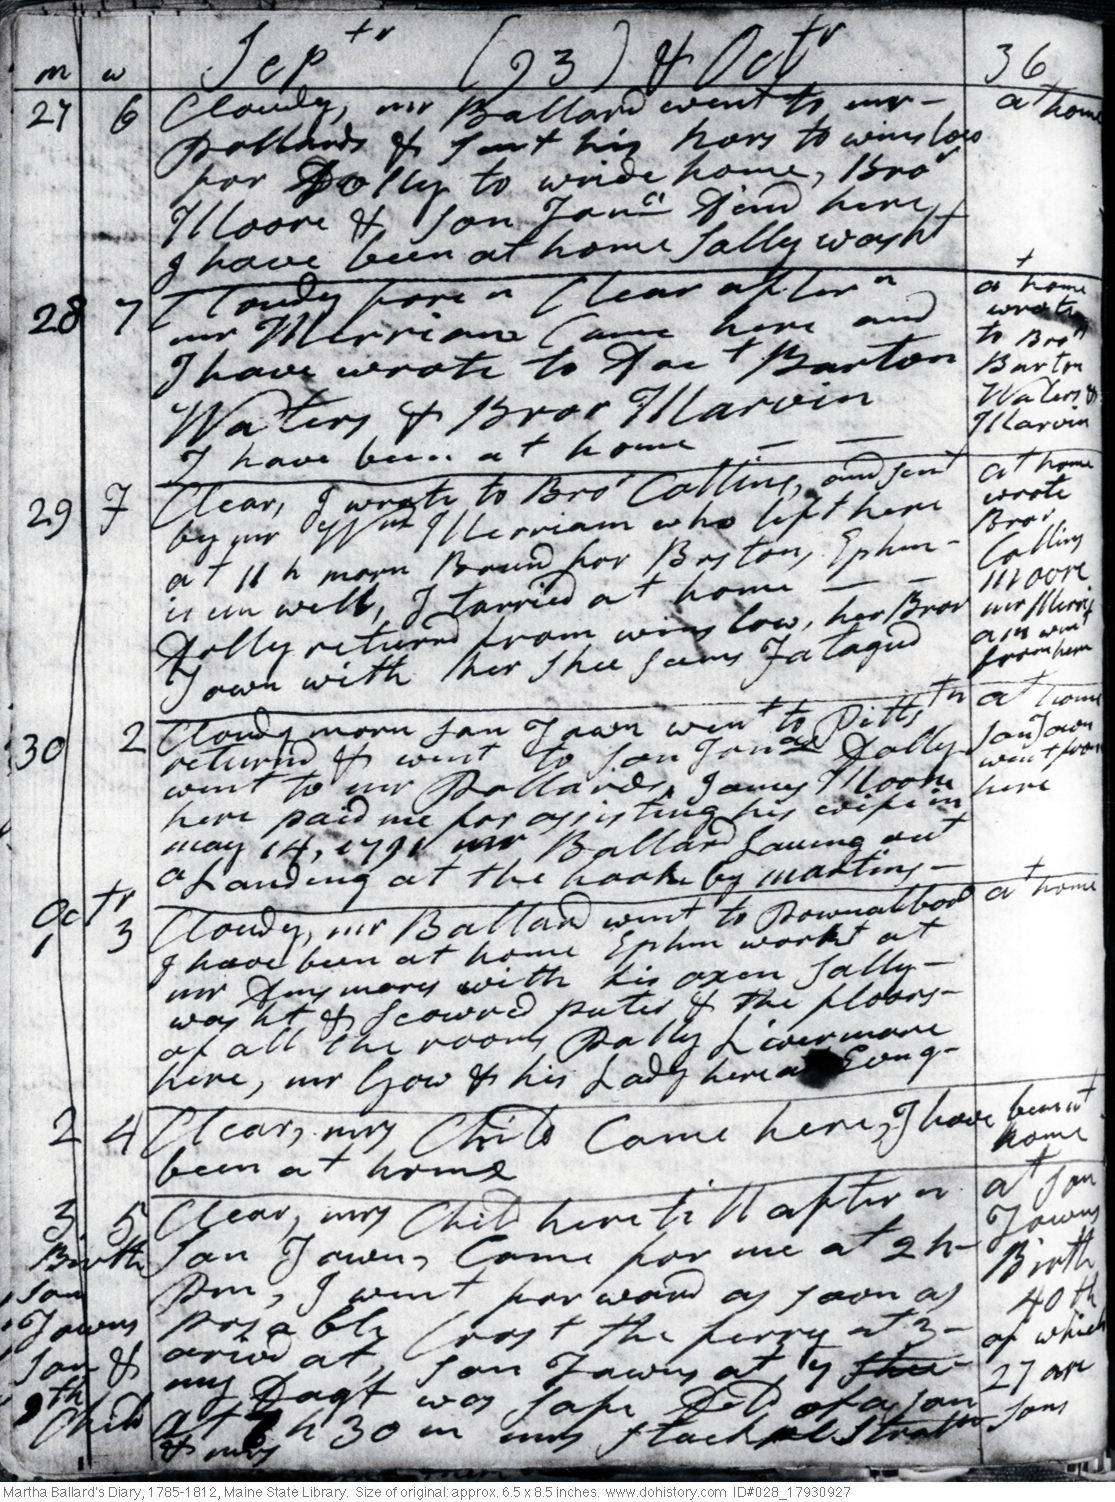 m w Sep tr (93) & Oct r 36
27 6 Cloudy, mr Ballard went to mr - at home
Pollards & sent his hors to winslow
for Dolly to wride home, Bro r
Moore & son Jon n Dind here
I have been at home Sally washt
28 7 Cloudy fore n Clear after n
mr Merriam Came here and
I have wrote to Doct Barton
Waters & Bror Marvin
I have been at home — —
at home
wrote
to Bro n
Barton
Waters &
Marvin
29 F Clear, I wrote to Bro r Collins, and sent
by mr Wm Merriam who left here
at 11 h morn Bound for Boston, Ephm -
is un well, I tarried at home — —
Dolly returnd from winslow, her Bror
Town with her shee seems Fatagud
at home
wrote
Bror
Collins
moore
mr Merri
am went
from here
30 2 Cloudy morn son Town went to Pitts tn
returnd & went to son Jon as Dolly
went to mr Pollards, James Moore
here paid me for assisting his wife in
may 14, 1791 mr Ballard Laung out
a Landing at the hook by martins -
at home
son Town
went from
here
Oct r
1 3 Cloudy, mr Ballard went to Pownalboro at home
I have been at home Ephm workt at
mr Densmores with his oxen Sally -
washt & scowrd puter & the floors -
of all the rooms Polly Livermore
here, mr Gow & his Lady here at Evng -
2 4 Clear, mrs Child Came here, I have
been at home
been at
home
3 5 Clear, mrs Child here till after n
son Town, Came for me at 2 h -
Pm, I went forward as soon as
posable Crost the ferry at 3 -
arivd at son Towns at
my Dagt was safe Dld of a son
at 7 h 30 m mrs
& mrs
Birth
son
Towns
son &
9th
Child
at son
Towns
Birth
40th
of which
27 are
sons
Martha Ballard's Diary, 1785-1812, Maine State Library. Size of original: approx. 6.5 x 8.5 inches. www.dohistory.com ID#028_17930927